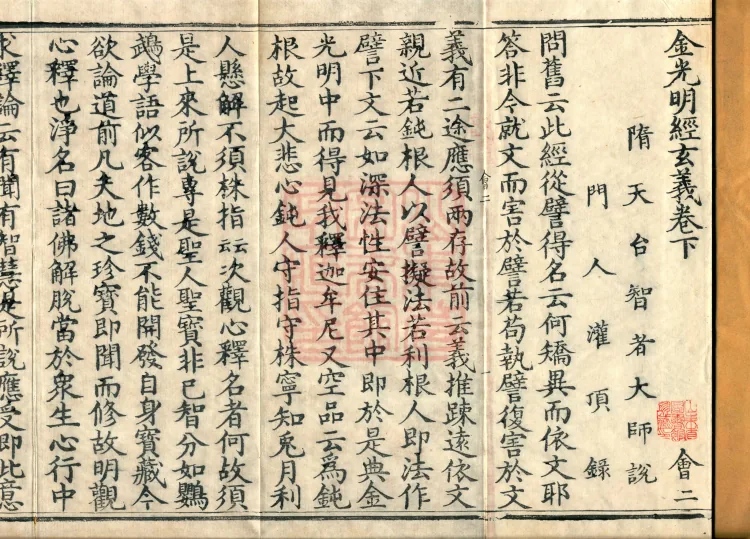 金光明經玄義卷下
會二
隋天台智者大師說
門人灌頂錄
問舊云此經從譬得名云何矯異而依文耶
答非今就文而害於譬若苟執譬復害於文
義有二途應須兩存故前云義推踈遠依文
會二
親近若鈍根人以譬擬法若利根人即法作
譬下文云如深法性安住其中即於是典金
光明中而得見我釋迦牟尼又空品云為鈍
根故起大悲心鈍人守指守株寧知兎月利
人懸解不須株指云云次觀心釋名者何故須
是上來所說專是聖人聖寶非已智分如鸚
鵡學語似客作數錢不能開發自身寶藏今
欲論道前凡夫地之珍寶即聞而修故明觀
心釋也淨名曰諸佛解脫當於衆生心行中
求釋論云有聞有智慧是所說應受即此意